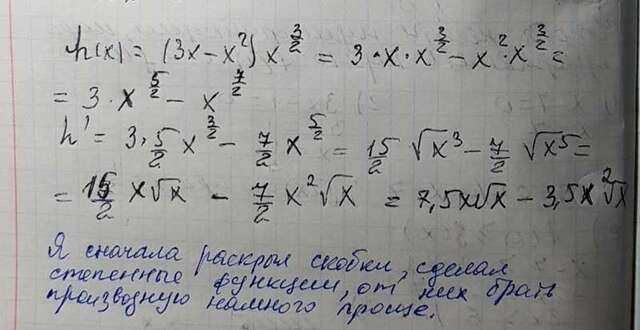 h(x) = (3x - x²) x^{3/2} = 3 · x · x^{3/2} - x² · x^{3/2} =
= 3 · x^{5/2} - x^{7/2}
h' = 3 · 5/2 x^{3/2} - 7/2 x^{5/2} = 15/2 √x³ - 7/2 √x⁵ =
= 15/2 x√x - 7/2 x²√x = 7,5x√x - 3,5x²√x
Я сначала раскрыл скобки, сделал
степенные функции, от них брать
производную намного проще.